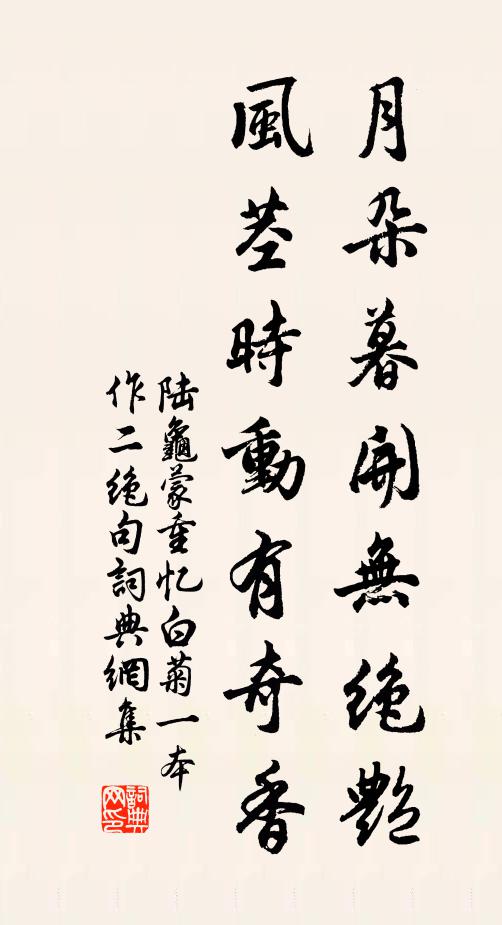 月朵暮開無絶艷
風莖時動有奇香
陆龜蒙重忆白菊一本
作二绝句詞典網集
詞典
网印